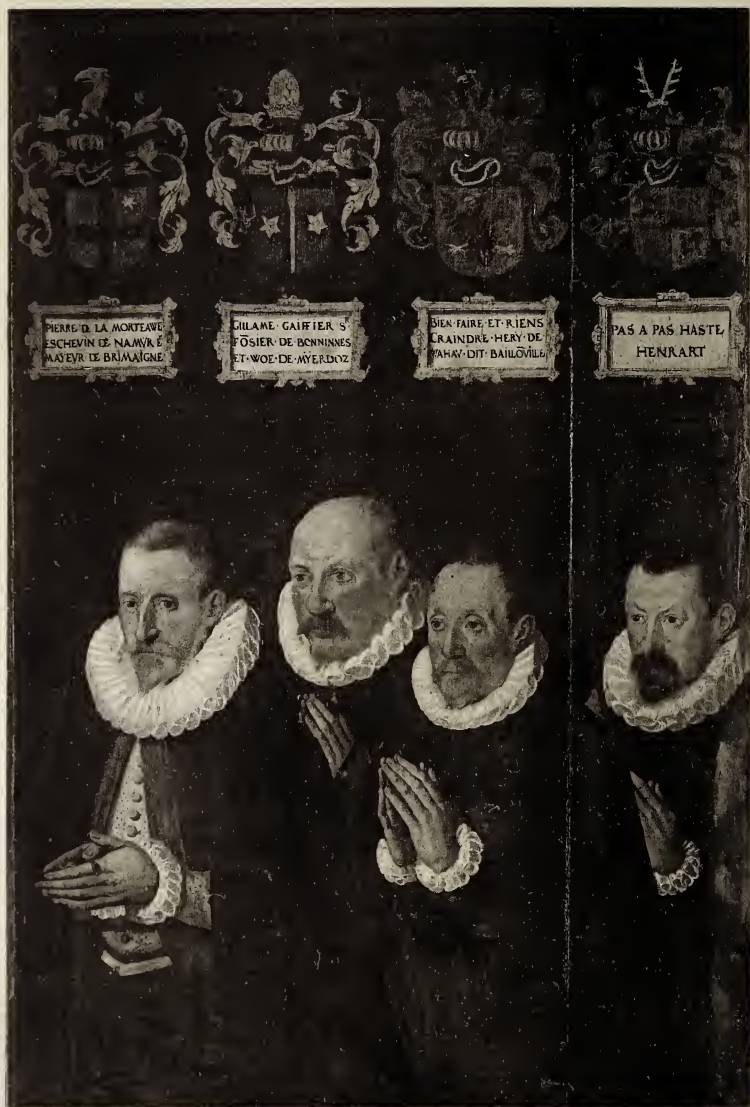 PIERRE D LA MORTEAWE
ESCHEVIN DE NAMVR E
MAYEVR DE BRIMAIGNE
GILLAME · GAIFFIER Sᴿ
FÕSIER · DE · BONNINNES
ET · WOE · DE · MYERDOZ
BIEN · FAIRE · ET · RIENS
CRAINDRE · HERY · DE
WAHAV · DIT · BAILLÕVILLE
PAS A PAS HASTE
HENRART